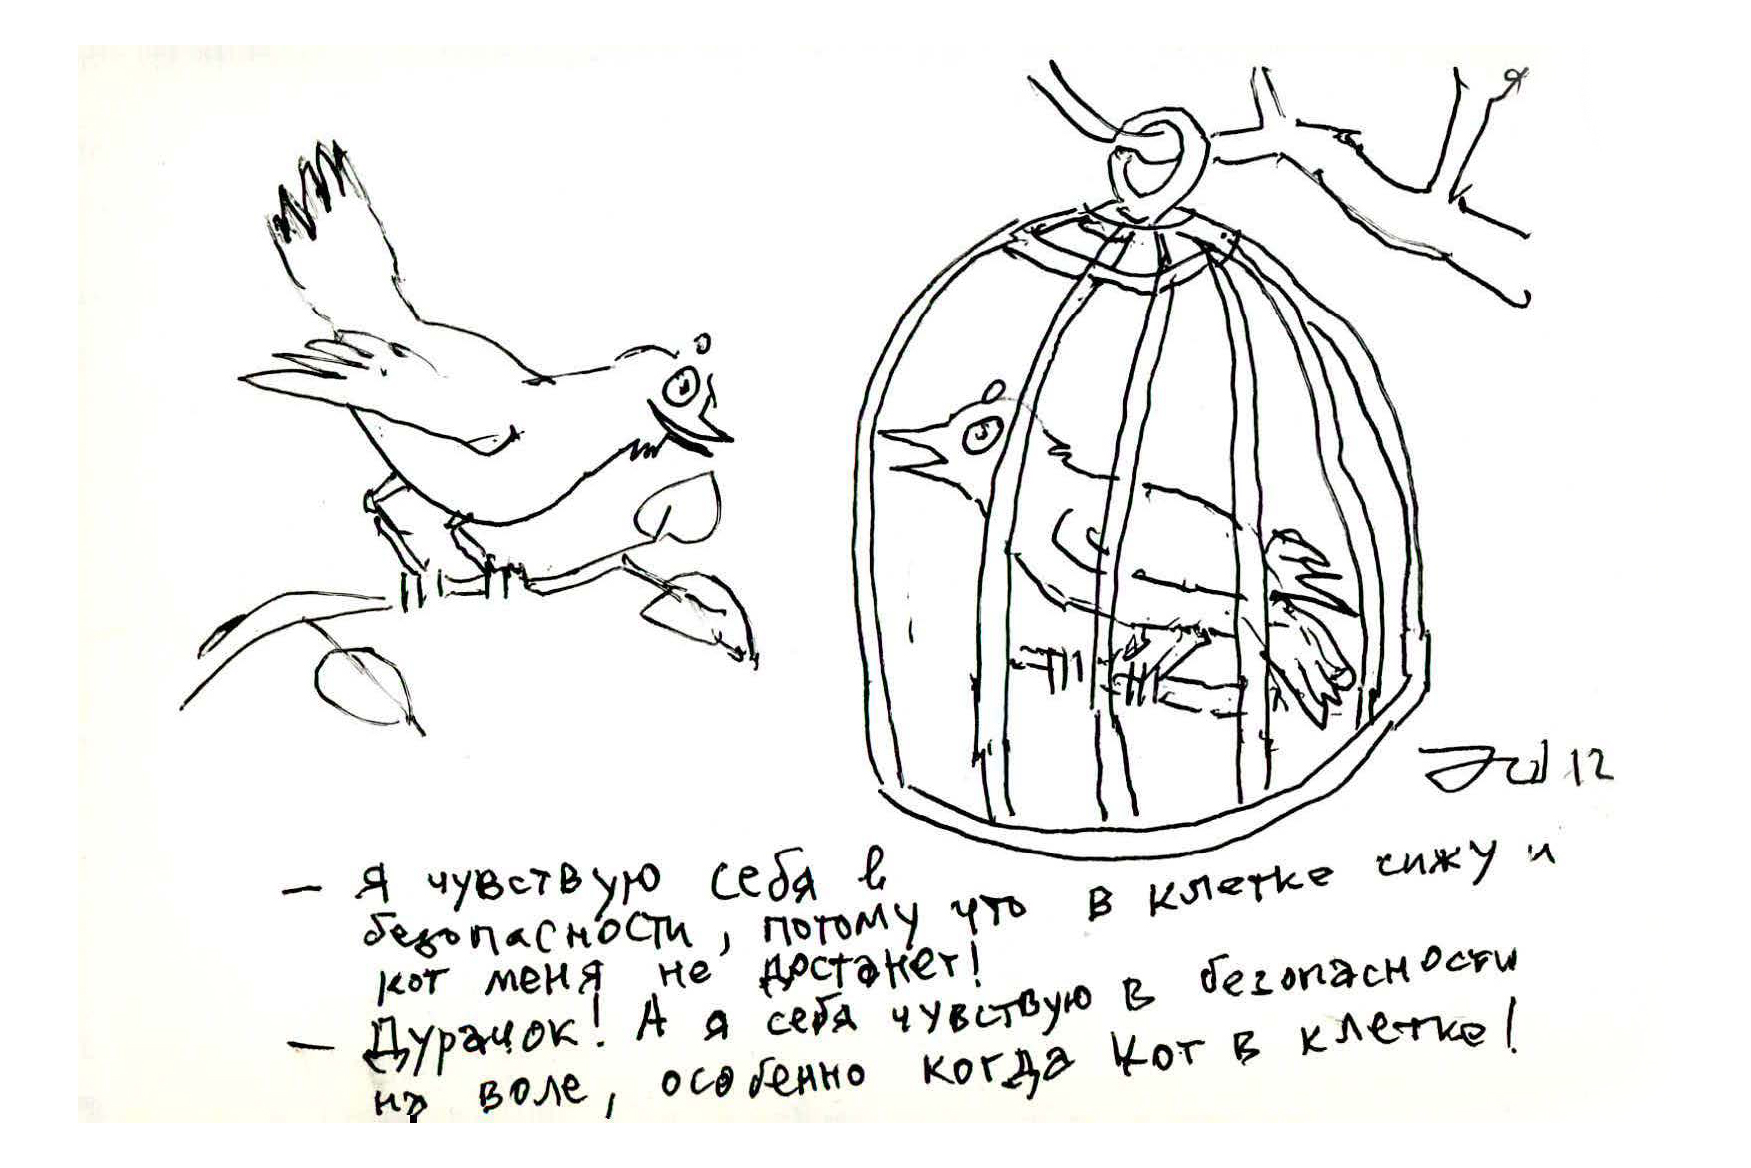 — Я чувствую себя в
безопасности, потому что в клетке сижу и
кот меня не достанет!
— Дурачок! А я себя чувствую в безопасности
на воле, особенно когда кот в клетке!
12